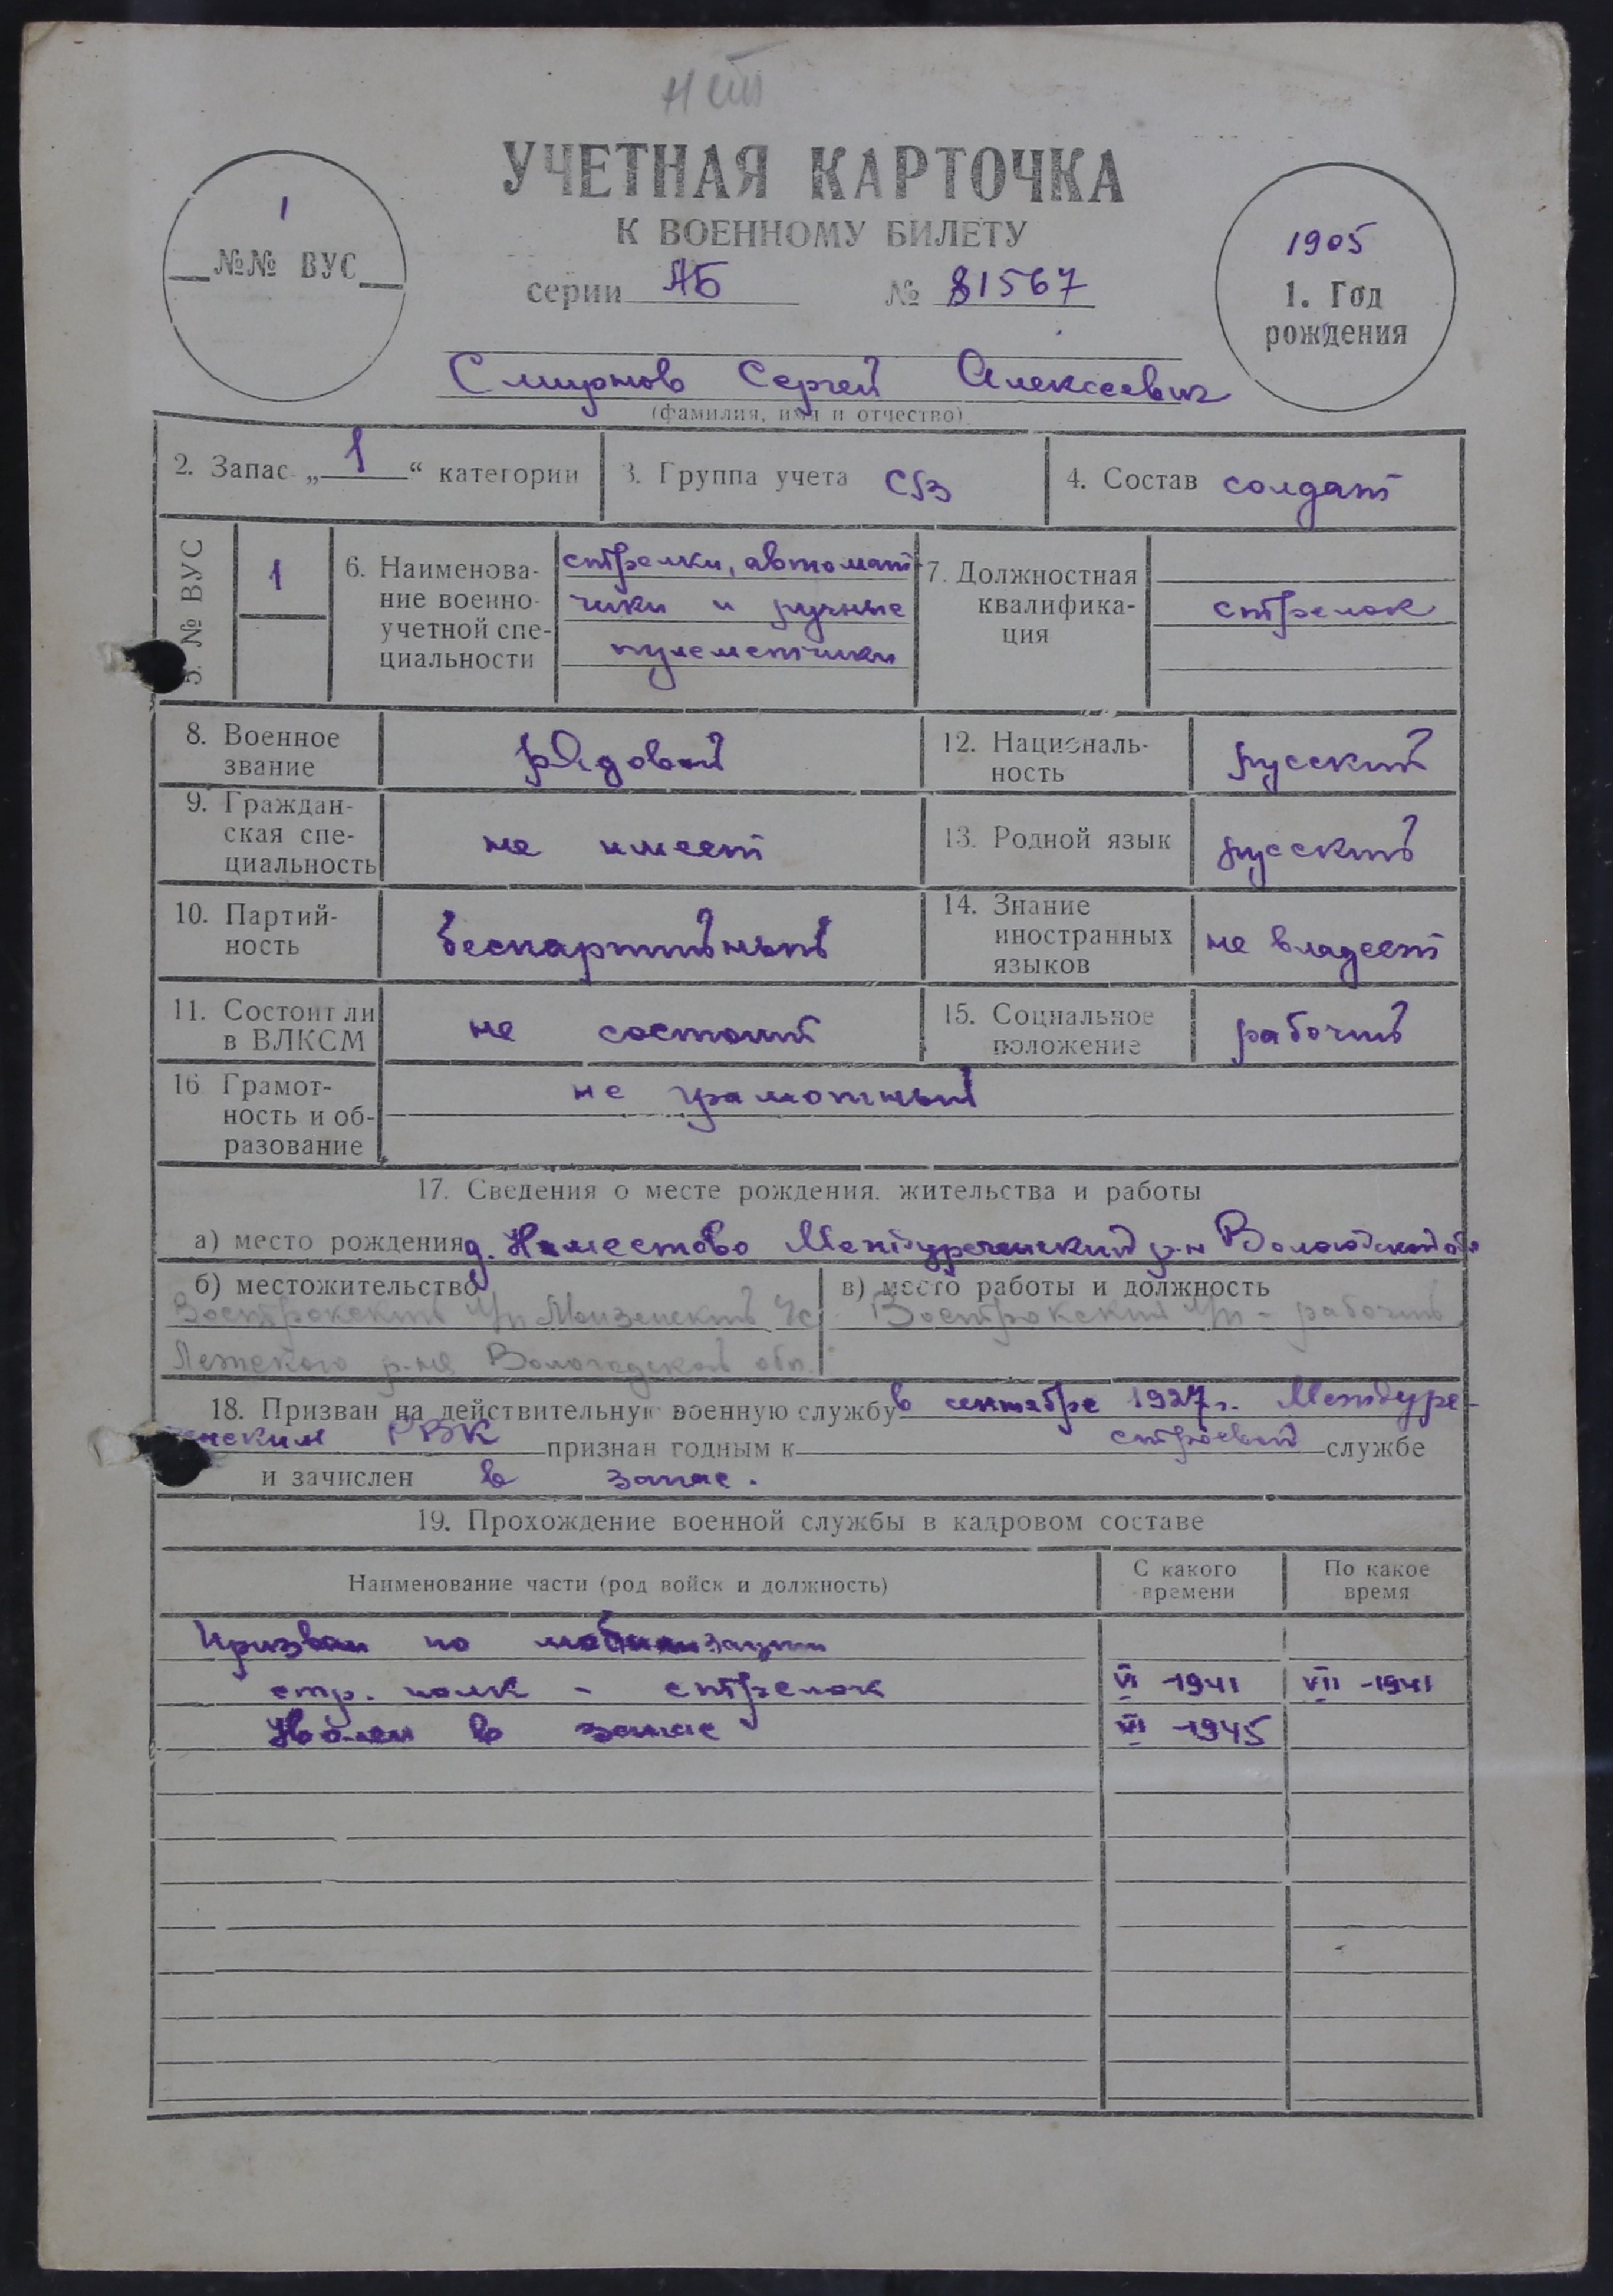 нет
УЧЕТНАЯ КАРТОЧКА
К ВОЕННОМУ БИЛЕТУ
серии АБ № 81567
1
№№ ВУС
1905
1. Год
рождения
Смирнов Сергей Алексеевич
(фамилия, имя и отчество)
2. Запас „1“ категории
3. Группа учета
4. Состав солдат
5. № ВУС
1
6. Наименова-
ние военно-
учетной спе-
циальности
стрелки, автомат-
чики и ручные
пулеметчики
7. Должностная
квалифика-
ция
стрелок
8. Военное
звание
рядовой
12. Националь-
ность
русский
9. Граждан-
ская спе-
циальность
не имеет
13. Родной язык
русский
10. Партий-
ность
беспартийный
14. Знание
иностранных
языков
не владеет
11. Состоит ли
в ВЛКСМ
не состоит
15. Социальное
положение
рабочий
16 Грамот-
ность и об-
разование
не грамотный
17. Сведения о месте рождения, жительства и работы
а) место рождения д. Наместово Междуреченский р-н Вологодской обл
б) местожительство
Вострокский
Лежского р-на Вологодской обл.
в) место работы и должность
Вострокский - рабочий
18. Призван на действительную военную службу в сентябре 1927 г. Междуре-
ченским РВК признан годным к строевой службе
и зачислен в запас.
19. Прохождение военной службы в кадровом составе
Наименование части (род войск и должность)
С какого
времени
По какое
время
Призван по мобилизации
стр. полк - стрелок VI -1941 VII -1941
Уволен в запас -1945